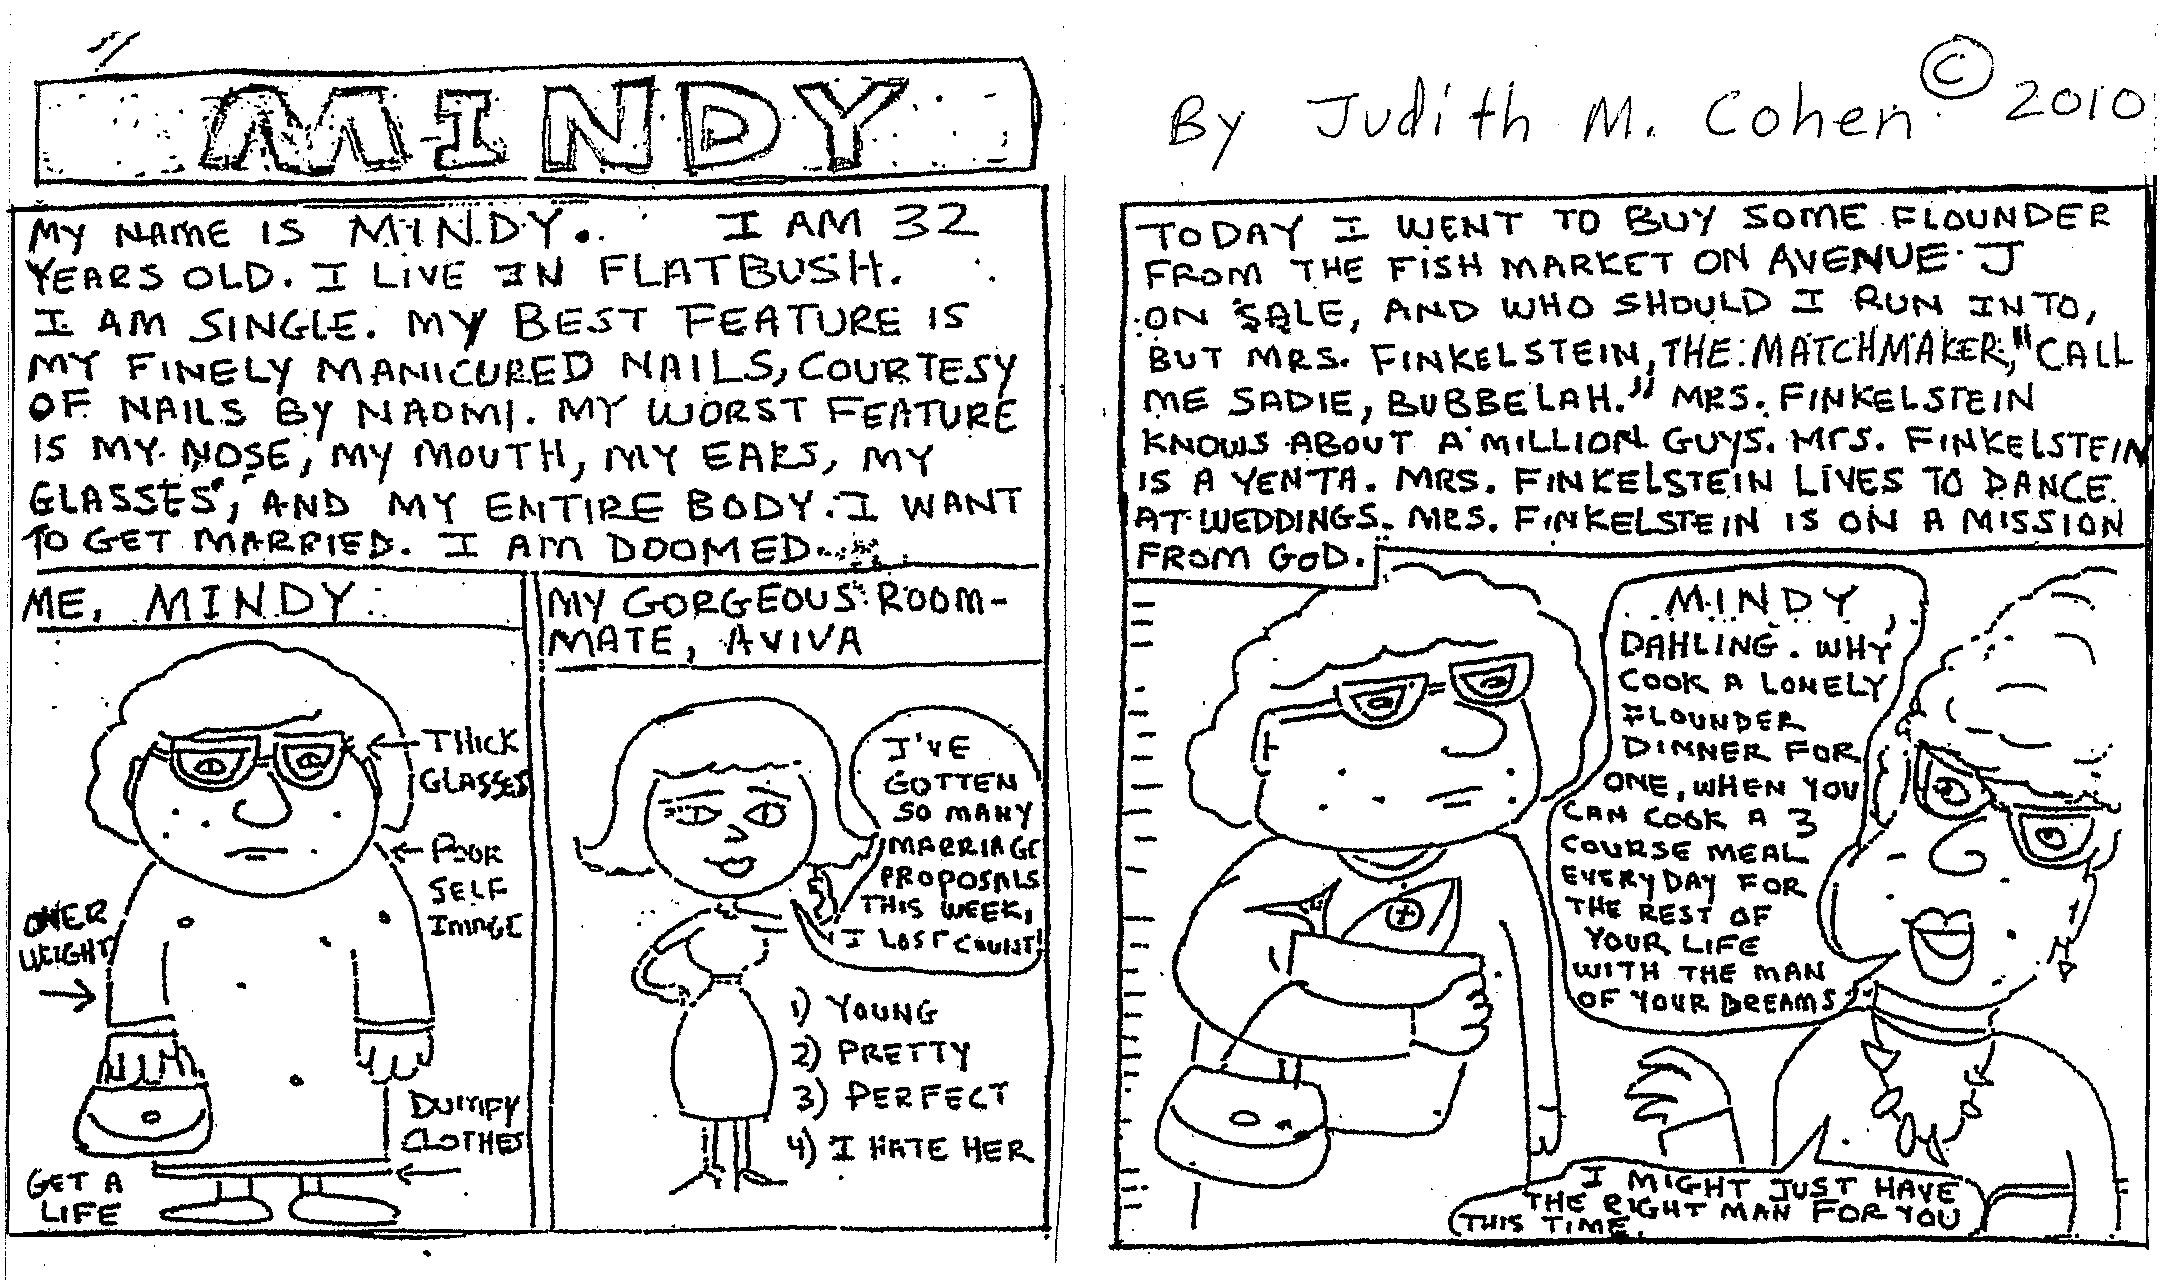 MINDY
By Judith M. Cohen © 2010
MY NAME IS MINDY. I AM 32
YEARS OLD. I LIVE IN FLATBUSH.
I AM SINGLE. MY BEST FEATURE IS
MY FINELY MANICURED NAILS, COURTESY
OF NAILS BY NAOMI. MY WORST FEATURE
IS MY NOSE, MY MOUTH, MY EARS, MY
GLASSES, AND MY ENTIRE BODY. I WANT
TO GET MARRIED. I AM DOOMED...
ME, MINDY
THICK
GLASSES
POOR
SELF
IMAGE
OVER
WEIGHT
DUMPY
CLOTHES
GET A
LIFE
MY GORGEOUS ROOM-
MATE, AVIVA
I'VE
GOTTEN
SO MANY
MARRIAGE
PROPOSALS
THIS WEEK,
I LOST COUNT!
1) YOUNG
2) PRETTY
3) PERFECT
4) I HATE HER
TODAY I WENT TO BUY SOME FLOUNDER
FROM THE FISH MARKET ON AVENUE J
ON SALE, AND WHO SHOULD I RUN INTO,
BUT MRS. FINKELSTEIN, THE MATCHMAKER, "CALL
ME SADIE, BUBBELAH." MRS. FINKELSTEIN
KNOWS ABOUT A MILLION GUYS. Mrs. FINKELSTEIN
IS A YENTA. MRS. FINKELSTEIN LIVES TO DANCE
AT WEDDINGS. MRS. FINKELSTEIN IS ON A MISSION
FROM GOD.
MINDY
DAHLING. WHY
COOK A LONELY
FLOUNDER
DINNER FOR
ONE, WHEN YOU
CAN COOK A 3
COURSE MEAL
EVERYDAY FOR
THE REST OF
YOUR LIFE
WITH THE MAN
OF YOUR DREAMS
I MIGHT JUST HAVE
THE RIGHT MAN FOR YOU
THIS TIME.